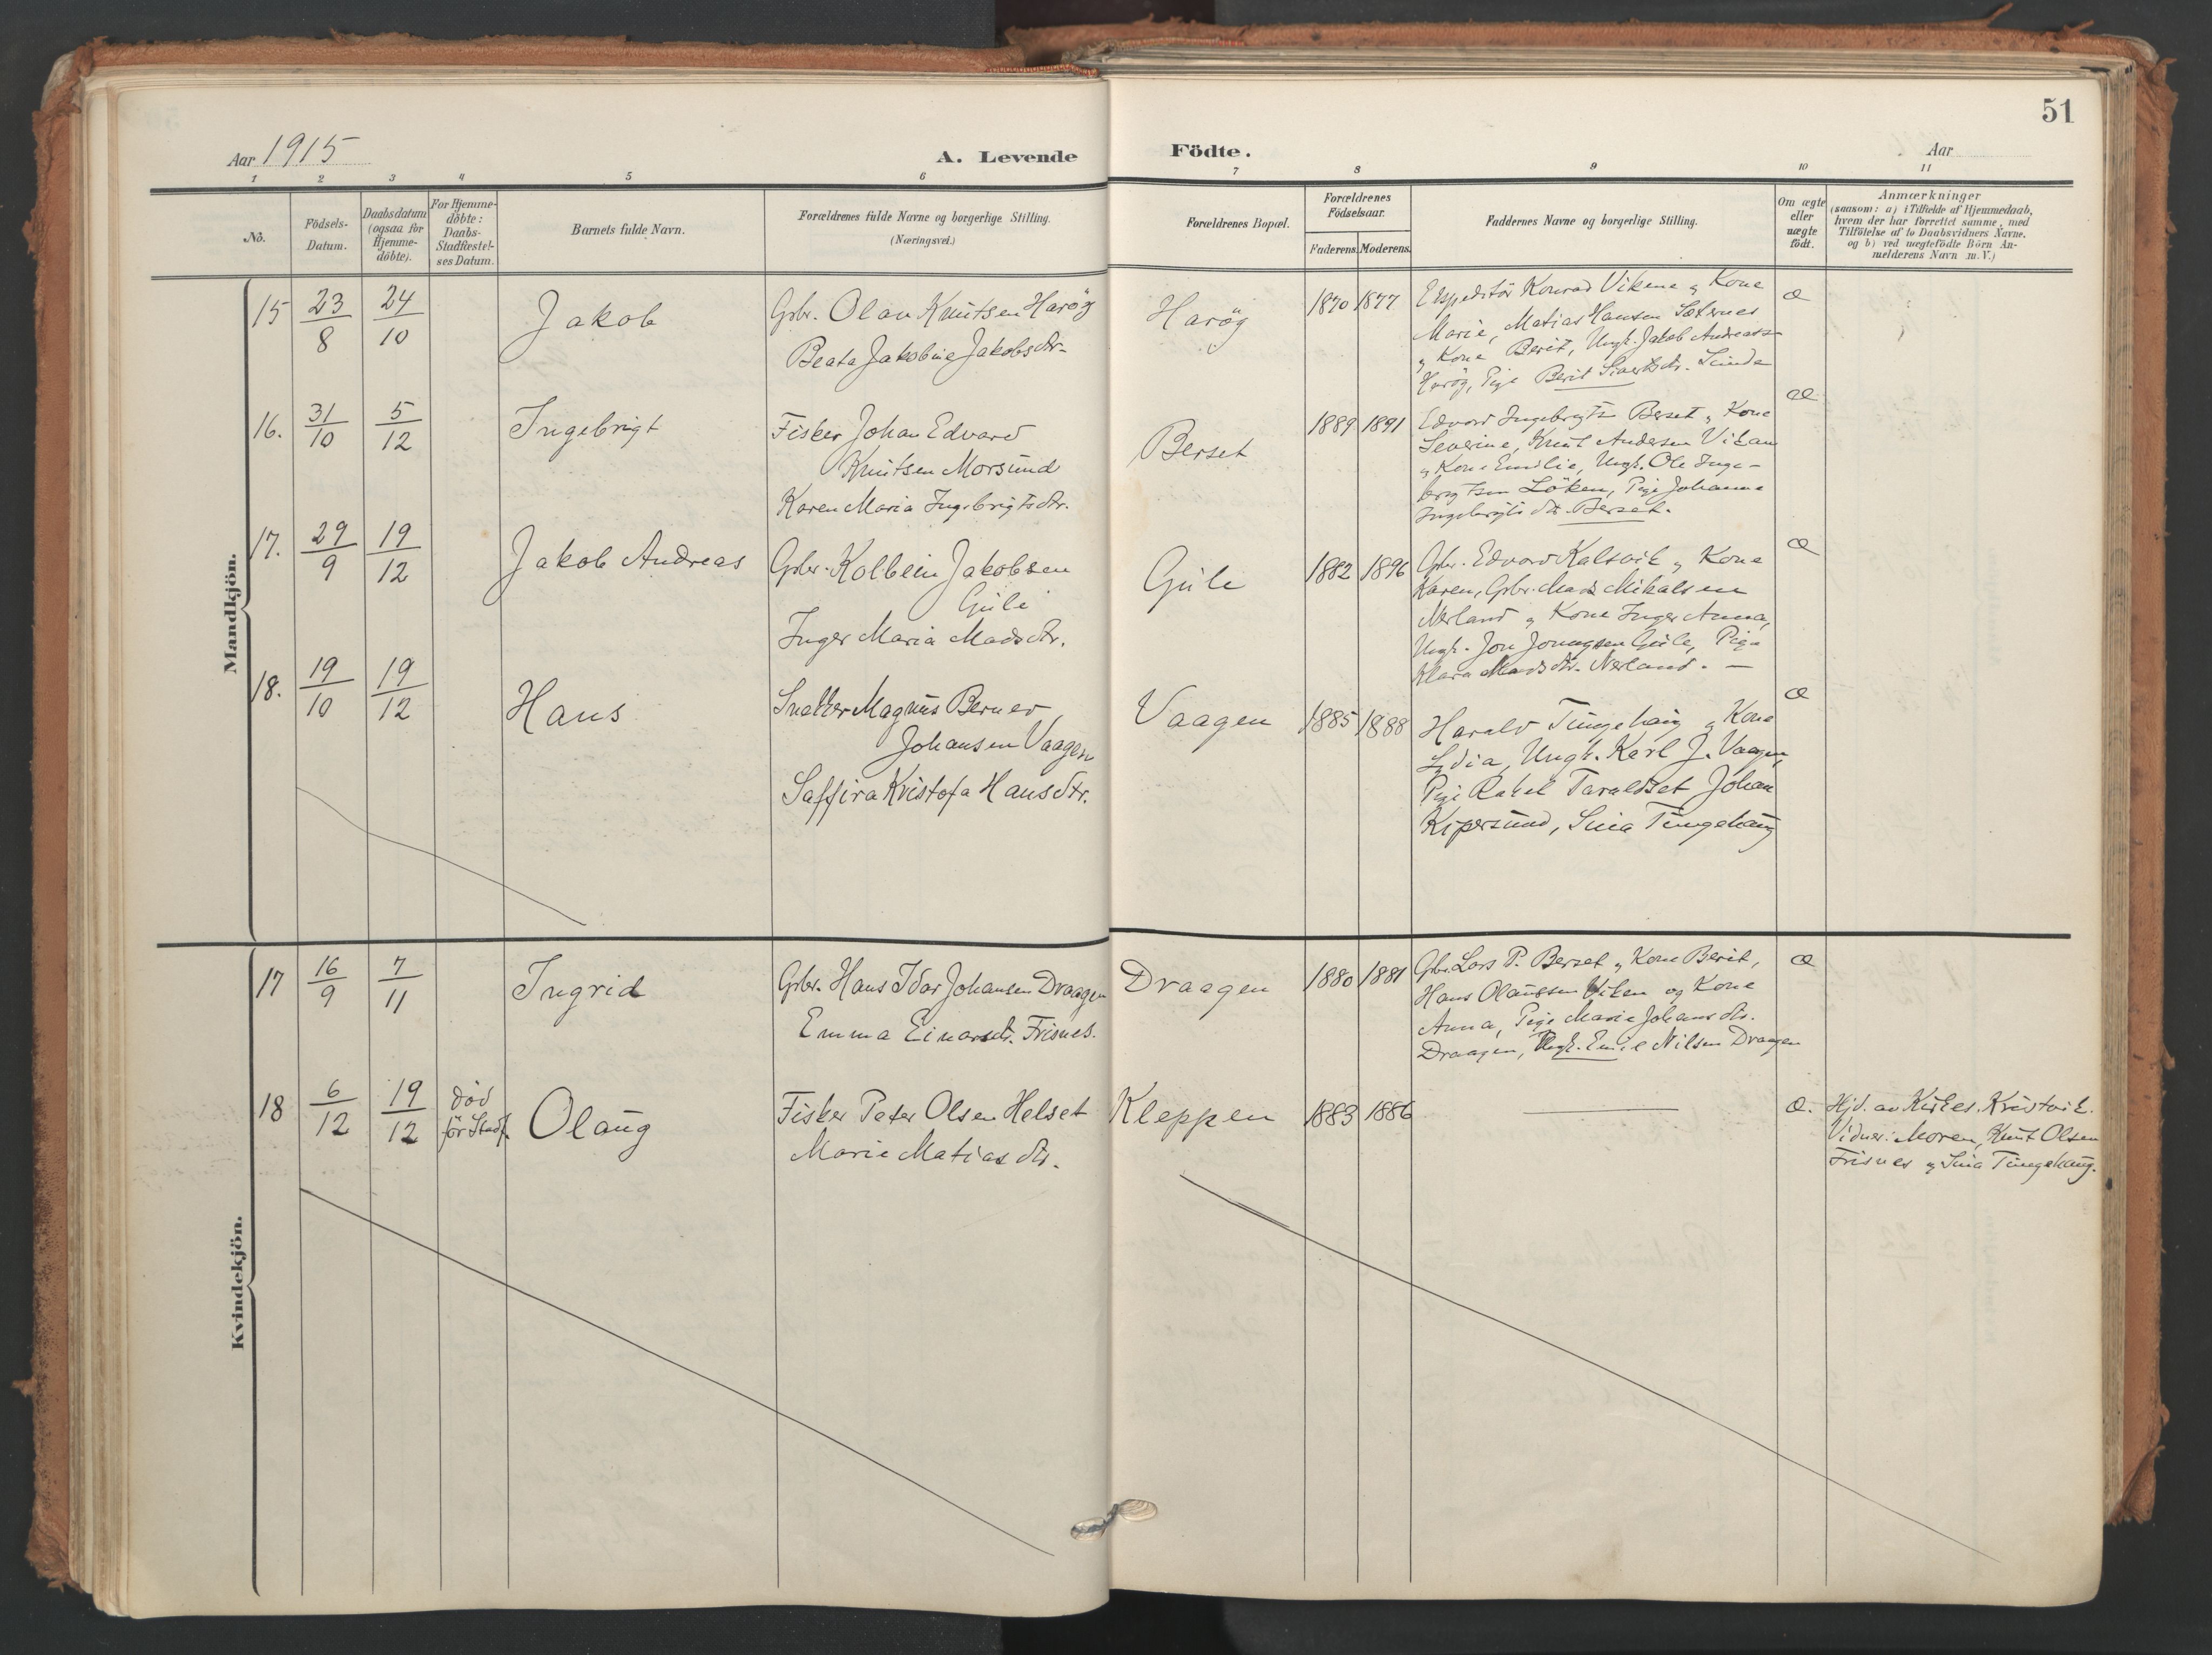 51
Aar 1915
A. Levende Födte.
Aar
1 2 3 4 5 6 7 8 9 10 11
No.
Födsels-Datum.
Daabsdatum (ogsaa for Hjemme-döbte).
For Hjemme-döbte: Daabs-Stadfæstel-ses Datum.
Barnets fulde Navn.
Forældrenes fulde Navne og borgerlige Stilling.
(Næringsvei.)
Forældrenes Bopæl.
Forældrenes Födselsaar.
Faderens. Moderens.
Faddernes Navne og borgerlige Stilling.
Om ægte eller uægte födt.
Anmærkninger
(saasom: a) i Tilfælde af Hjemmedaab,
hvem der har forrettet samme, med
Tilföielse af to Daabsvidners Navne,
og b) ved uægtefödte Börn An-
melderens Navn m. V.)
Mandkjön.
15 23/8 24/10 Jakob
Gbr. Olav Knutsen Haröy
Beata Jakobine Jakobsdtr.
Haröy 1870 1877
Expeditör Konrad Vikene og Kone
Marie, Matias Hansen Sæternes
og Kone Berit, Ungk. Jakob Andreass
Haröy, Pige Berit Sivertsdtr. Sunde
æ
16. 31/10 5/12 Ingebrigt
Fisker Johan Edvard
Knutsen Morsund
Karen Maria Ingebrigtsdtr.
Berset 1889 1891
Edvard Ingebrigts Berset og Kone
Severine, Knut Andersen Vikan
og Kone Emilie, Ungk. Ole Inge-
brigtsen Löken, Pige Johanna
Ingebrigtsdtr. Berset.
æ
17. 29/9 19/12 Jakob Andreas
Gbr. Kolbein Jakobsen
Gule
Inger Maria Madsdtr.
Gule 1882 1896
Gbr. Edvard Kalsvik og Kone
Karen, Gbr. Mads Mikalsen
Nerland og Kone Inger Anna,
Ungk. Jon Jonassen Gule, Pige
Klara Madsdtr. Nerland. —
æ
18. 19/10 19/12 Hans
Snekker Magnus Berner
Johansen Vaagen
Saffira Kristofa Hansdtr.
Vaagen 1885 1888
Harald Tungehaug og Kone
Lydia, Ungk. Karl J. Vaagen,
Pige Rakel Taraldset Johan
Kipersund, Sina Tungehaug
æ
Kvindekjön.
17 16/9 7/11 Ingrid
Gbr. Hans Idar Johansen Draagen
Emma Einarsdtr. Frisnes.
Draagen 1880 1881
Gbr. Lars P. Berset og Kone Berit,
Hans Olaussen Viken og Kone
Anna, Pige Marie Johansdtr.
Draagen, Ungk. Emil Nilsen Draagen
æ
18 6/12 19/12 död för Stadf. Olaug
Fisker Peter Olsen Helset
Marie Matiasdtr.
Kleppen 1883 1886
—
æ.
Hjd. av Kirkes. Kristvik.
Vidner: Moren, Knut Olsen
Frisnes og Sina Tungehaug.